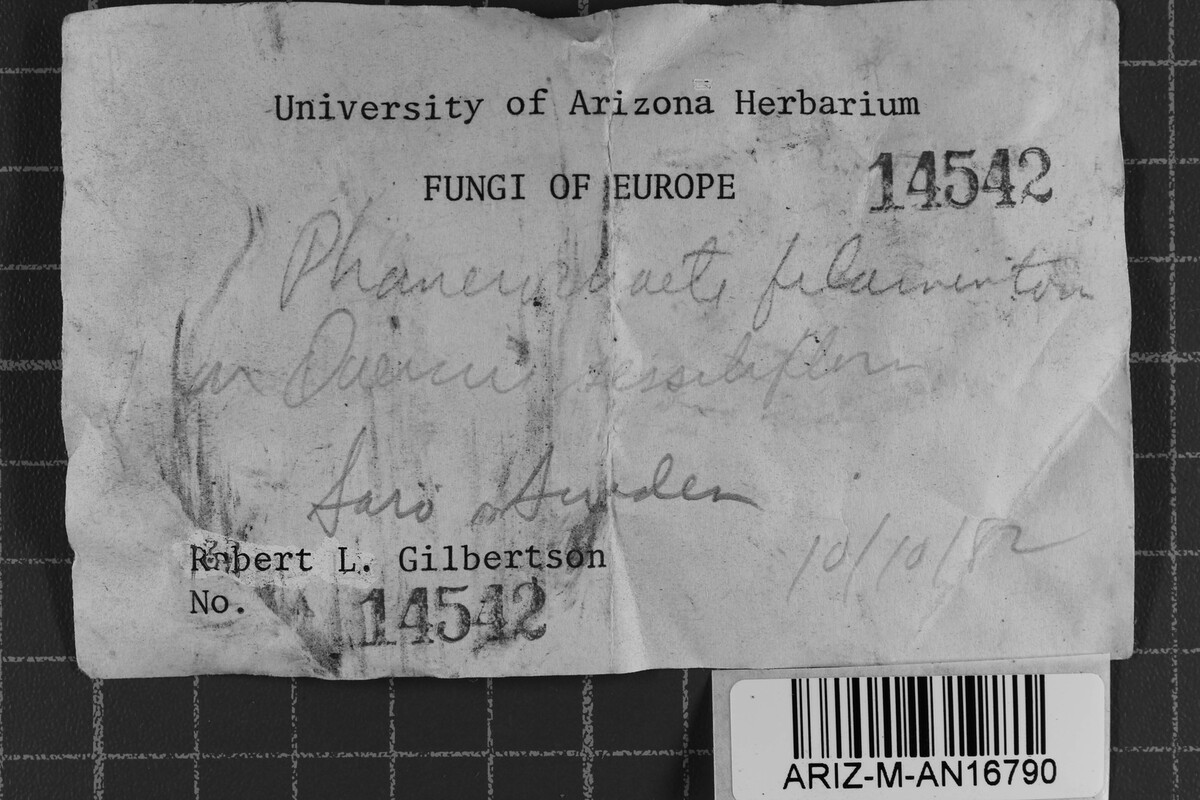 University of Arizona Herbarium
FUNGI OF EUROPE
14542
Phanerochaete filamentosa
on Quercus sessiliflora
Saro Sweden
10/10/82
Robert L. Gilbertson
No. 14542
ARIZ-M-AN16790